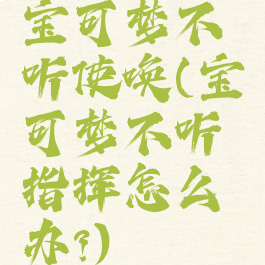 宝可梦不
听使唤(宝
可梦不听
指挥怎么
办?)